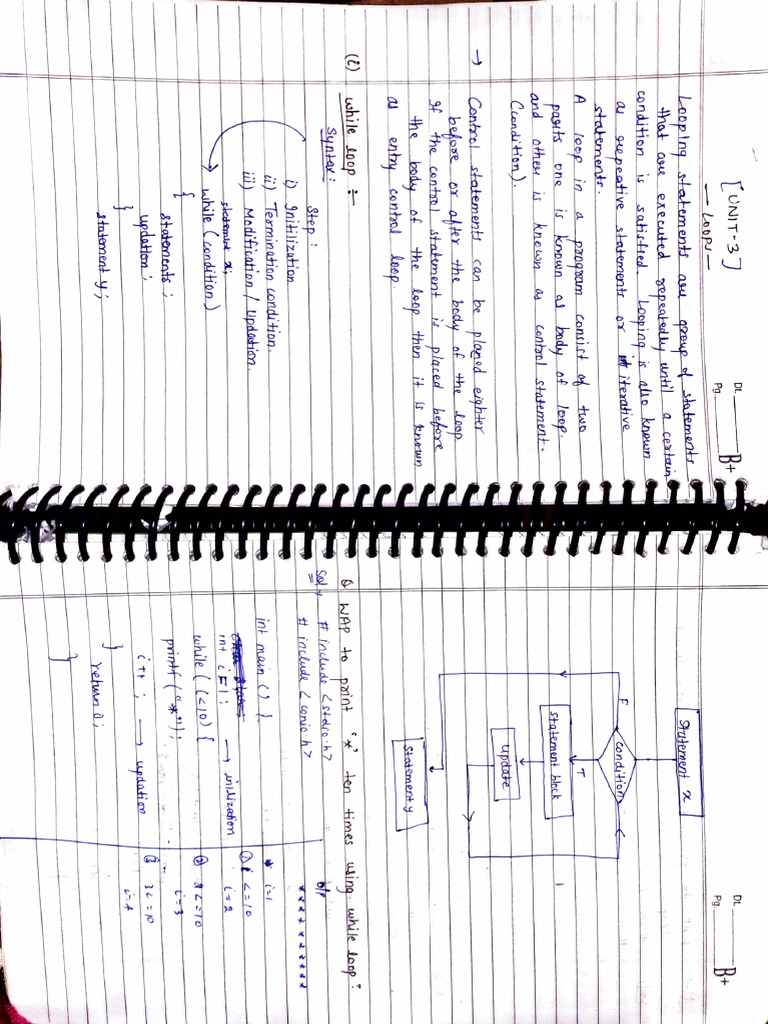 [UNIT-3]
— LOOPS —
Dt.
Pg.
B+
Looping statements are group of statements
that are executed repeatedly until a certain
condition is satisfied. Looping is also known
as repeative statements or iterative
statements.
A loop in a program consist of two
parts one is known as body of loop.
and other is known as control statement.
(condition).
→ Control statements can be placed eighter
before or after the body of the loop
If the control statement is placed before
the body of the loop then it is known
as entry control loop.
(i) while loop :-
Syntax :
Step :
i) Initilization
ii) Termination condition.
iii) Modification / Updation.
statement x;
while (condition)
{
statements ;
updation ;
}
statement y ;
Dt.
Pg.
B+
Statement x
condition
F
T
statement block
update
statement y
Q WAP to print '*' ten times using while loop :
Sol # include <stdio.h>
# include <conio.h>
int main () {
int i=1; → inilization
while (i<10) {
printf ("*");
i++ ; → updation
}
return 0;
}
o/p
* * * * * * * * * *
i=1
① i <=10
i=2
② 2<=10
i=3
③ 3<=10
i=4